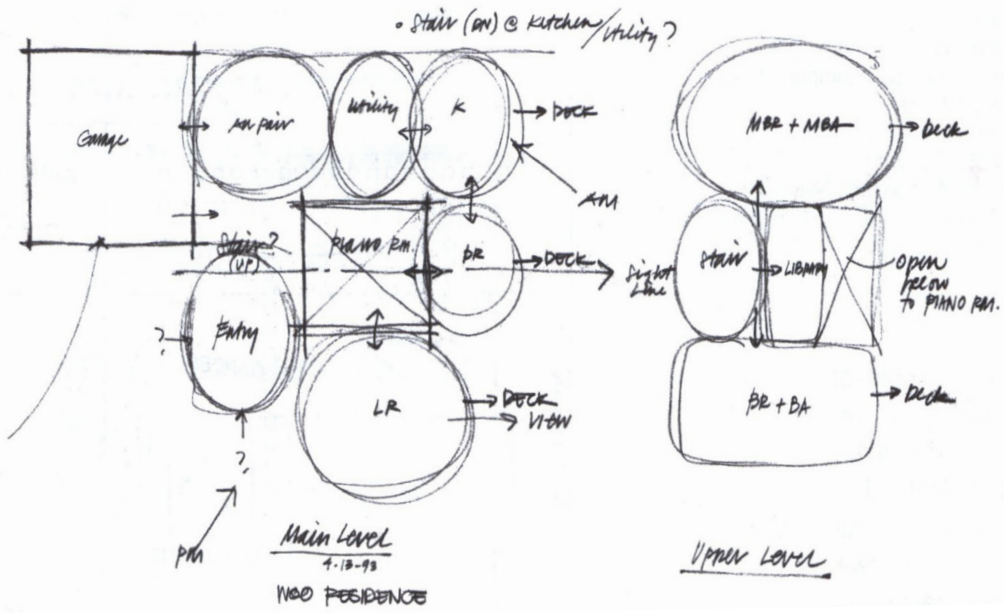 • Stair (DN) @ Kitchen/Utility?
Garage
Au pair
Utility
K
→ DECK
AM
Stair?
(UP)
PIANO RM.
DR
→ DECK
Sight
Line
?
Entry
LR
→ DECK
→ VIEW
?
PM
Main Level
4-13-93
WOO RESIDENCE
MBR + MBA
→ Deck
Stair
LIBRARY
open
below
to PIANO RM.
BR + BA
→ Deck
Upper Level